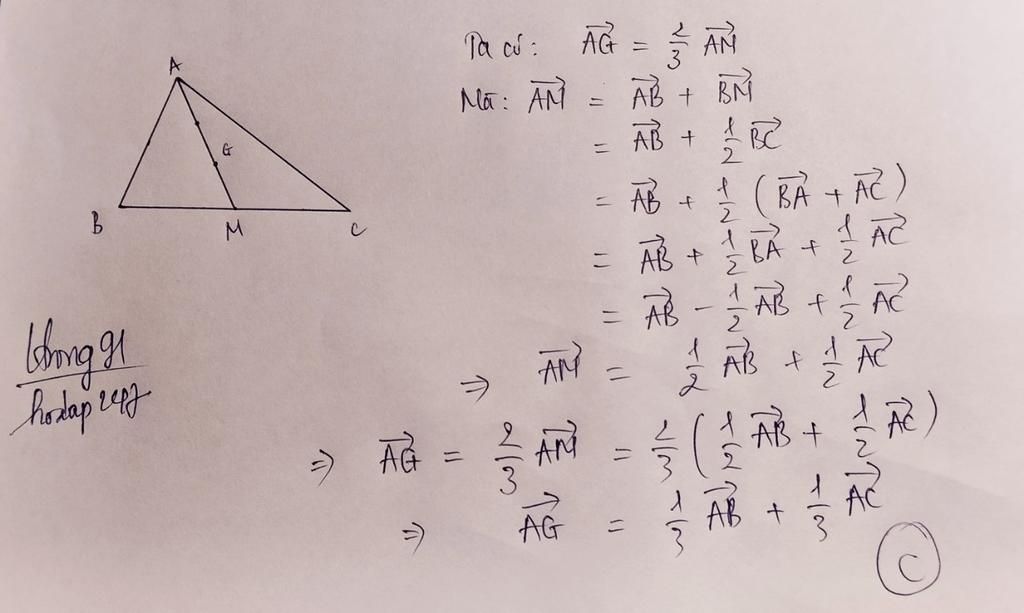 A
G
B
M
C
Ta có: $\overrightarrow{AG} = \frac{2}{3} \overrightarrow{AM}$
Mà: $\overrightarrow{AM} = \overrightarrow{AB} + \overrightarrow{BM}$
$= \overrightarrow{AB} + \frac{1}{2} \overrightarrow{BC}$
$= \overrightarrow{AB} + \frac{1}{2} (\overrightarrow{BA} + \overrightarrow{AC})$
$= \overrightarrow{AB} + \frac{1}{2} \overrightarrow{BA} + \frac{1}{2} \overrightarrow{AC}$
$= \overrightarrow{AB} - \frac{1}{2} \overrightarrow{AB} + \frac{1}{2} \overrightarrow{AC}$
$\Rightarrow \overrightarrow{AM} = \frac{1}{2} \overrightarrow{AB} + \frac{1}{2} \overrightarrow{AC}$
$\Rightarrow \overrightarrow{AG} = \frac{2}{3} \overrightarrow{AM} = \frac{2}{3} (\frac{1}{2} \overrightarrow{AB} + \frac{1}{2} \overrightarrow{AC})$
$\Rightarrow \overrightarrow{AG} = \frac{1}{3} \overrightarrow{AB} + \frac{1}{3} \overrightarrow{AC}$
C
hoidap247